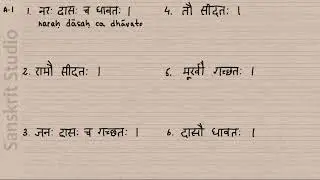 A-1
1. नरः दासः च धावतः ।
naraḥ dāsaḥ ca dhāvato
2. रामौ सीदतः ।
3. जनः दासः च गच्छतः ।
4. तौ सीदतः ।
5. मूर्खौ गच्छतः ।
6. दासौ धावतः ।
Sanskrit Studio